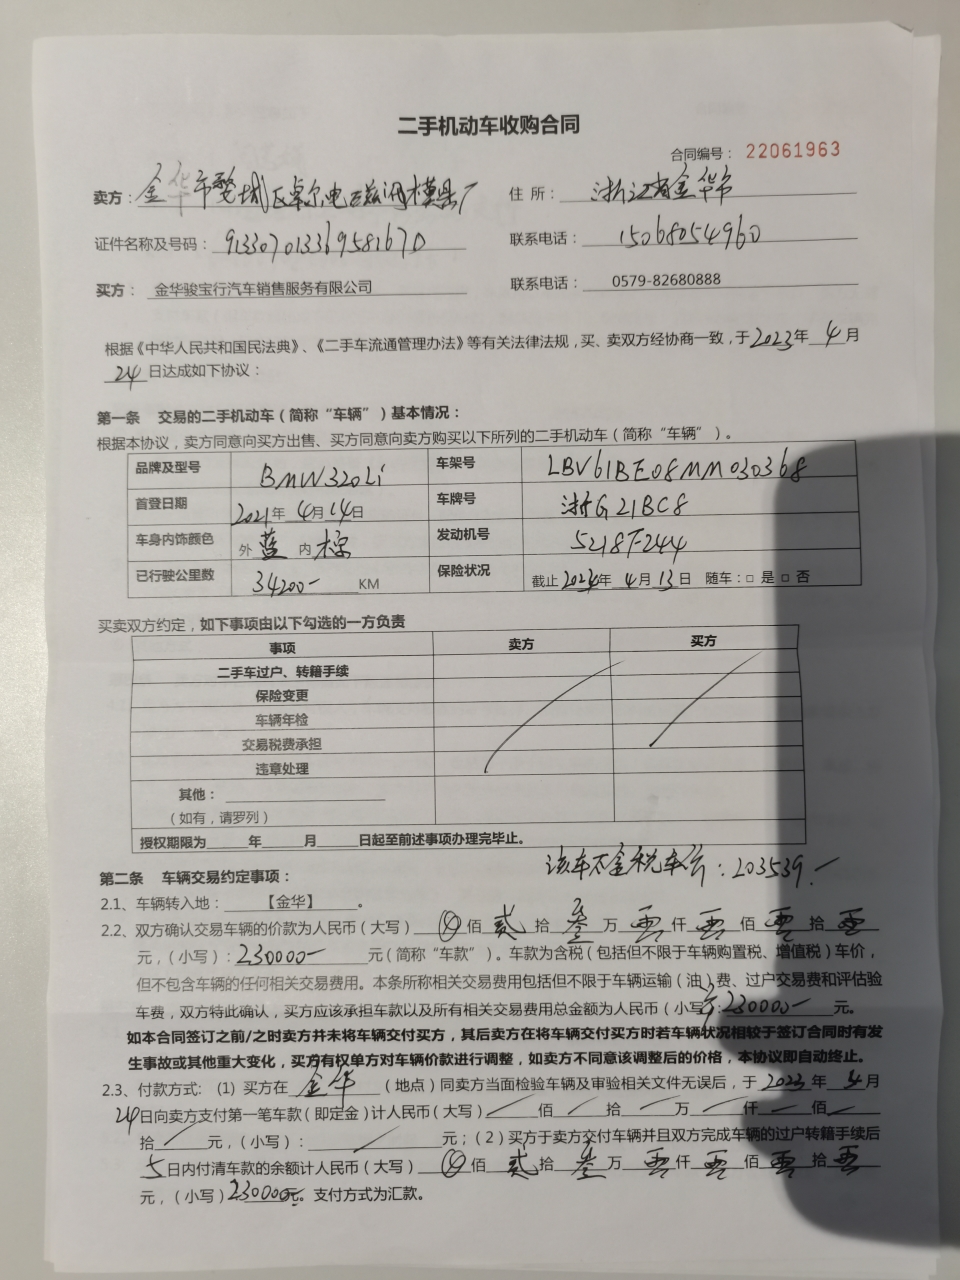 二手机动车收购合同
合同编号： 22061963
卖方：金华市婺城区卓尔电磁阀模具厂 住 所：浙江省金华市
证件名称及号码：91330701336958167D 联系电话：15068054960
买方： 金华骏宝行汽车销售服务有限公司 联系电话： 0579-82680888
根据《中华人民共和国民法典》、《二手车流通管理办法》等有关法律法规，买、卖双方经协商一致，于2023年 4 月
24日达成如下协议：
第一条 交易的二手机动车（简称“车辆”）基本情况：
根据本协议，卖方同意向买方出售、买方同意向卖方购买以下所列的二手机动车（简称“车辆”）。
品牌及型号 BMW320Li 车架号 LBV61BE08MM030368
首登日期 2021年 4月 14日 车牌号 浙G21BC8
车身内饰颜色 外 蓝 内 棕 发动机号 5218F244
已行驶公里数 34200- KM 保险状况 截止2024年 4月 13日 随车：□ 是 □ 否
买卖双方约定，如下事项由以下勾选的一方负责
事项 卖方 买方
二手车过户、转籍手续
保险变更
车辆年检
交易税费承担
违章处理
其他：
（如有，请罗列）
授权期限为 年 月 日起至前述事项办理完毕止。
该车不含税车价：203539.-
第二条 车辆交易约定事项：
2.1、车辆转入地： 【金华】 。
2.2、双方确认交易车辆的价款为人民币（大写） ⊗ 佰 贰 拾 叁 万 零 仟 零 佰 零 拾 零
元，（小写）：230000- 元（简称“车款”）。车款为含税（包括但不限于车辆购置税、增值税）车价，
但不包含车辆的任何相关交易费用。本条所称相关交易费用包括但不限于车辆运输（油）费、过户交易费和评估验
车费，双方特此确认，买方应该承担车款以及所有相关交易费用总金额为人民币（小写）：230000- 元。
如本合同签订之前/之时卖方并未将车辆交付买方，其后卖方在将车辆交付买方时若车辆状况相较于签订合同时有发
生事故或其他重大变化，买方有权单方对车辆价款进行调整，如卖方不同意该调整后的价格，本协议即自动终止。
2.3、付款方式：（1）买方在 金华 （地点）同卖方当面检验车辆及审验相关文件无误后，于 2023 年 4 月
24日向卖方支付第一笔车款（即定金）计人民币（大写） 佰 拾 万 仟 佰
拾 元，（小写）： 元；（2）买方于卖方交付车辆并且双方完成车辆的过户转籍手续后
5日内付清车款的余额计人民币（大写） ⊗ 佰 贰 拾 叁 万 零 仟 零 佰 零 拾 零
元，（小写）230000元。支付方式为汇款。